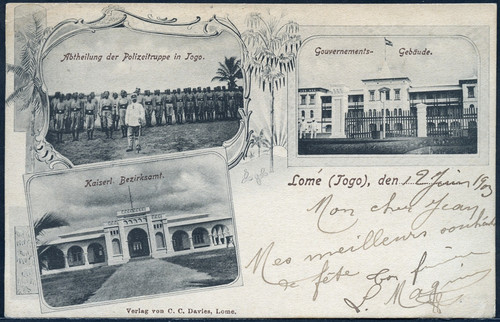 Abtheilung der Polizeitruppe in Togo.
Gouvernements- Gebäude.
Kaiserl. Bezirksamt.
Lomé (Togo), den 12 Juin 190
Mon cher Jean
Mes meilleurs souhaits
de fête
Verlag von C. C. Davies, Lome.